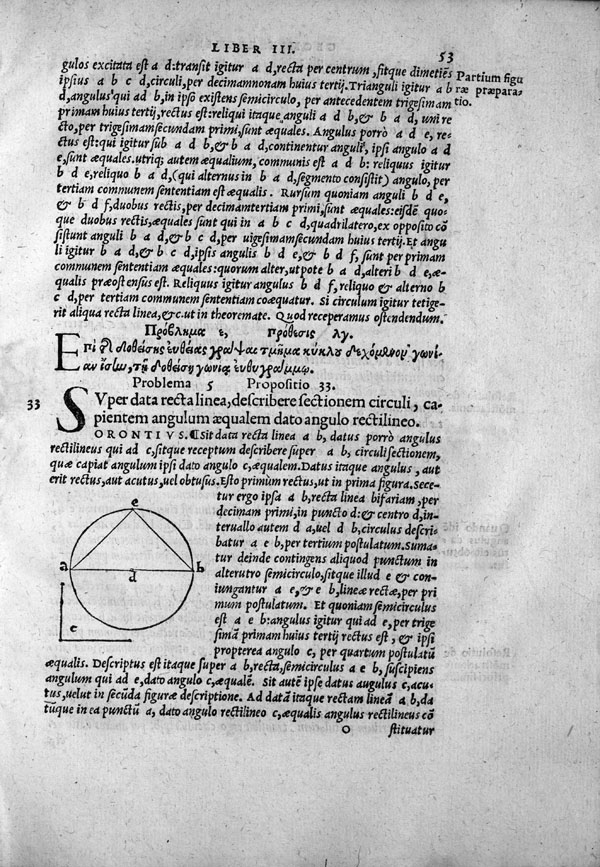 LIBER III.
53
gulos excitata est a d: transit igitur a d, recta per centrum, sitque dimetiēs
Partium figu
ipsius a b c d, circuli, per decimamnonam huius tertij. Trianguli igitur a b
ræ præpara-
d, angulus qui ad b, in ipso existens semicirculo, per antecedentem trigesimam
tio.
primam huius tertij, rectus est: reliqui itaque anguli a d b, & b a d, uni re
cto, per trigesimamsecundam primi, sunt æquales. Angulus porrò a d e, re-
ctus est: qui igitur sub a d b, & b a d, continentur anguli, ipsi angulo a d
e, sunt æquales. utriq; autem æqualium, communis est a d b: reliquus igitur
b d e, reliquo b a d, (qui alternus in b a d, segmento consistit) angulo, per
tertiam communem sententiam est æqualis. Rursum quoniam anguli b d e,
& b d f, duobus rectis, per decimamtertiam primi, sunt æquales: eisdē quo-
que duobus rectis, æquales sunt qui in a b c d, quadrilatero, ex opposito cō
sistunt anguli b a d, & b c d, per uigesimamsecundam huius tertij. Et angu
li igitur b a d, & b c d, ipsis angulis b d e, & b d f, sunt per primam
communem sententiam æquales: quorum alter, ut pote b a d, alteri b d e, æ-
qualis præostensus est. Reliquus igitur angulus b d f, reliquo & alterno b
c d, per tertiam communem sententiam coæquatur. Si circulum igitur tetige-
rit aliqua recta linea, &c. ut in theoremate. Quod receperamus ostendendum.
Πρόβλημα ε, πρόθεσις λγ.
Επὶ τῆ δοθείσης εὐθείας γράψαι τμῆμα κύκλου δεχόμενον γωνί-
αν ἴσην, τῇ δοθείσῃ γωνίᾳ εὐθυγράμμῳ.
Problema 5 Propositio 33.
33
SVper data recta linea, describere sectionem circuli, ca-
pientem angulum æqualem dato angulo rectilineo.
ORONTIVS. ¶Sit data recta linea a b, datus porrò angulus
rectilineus qui ad c, sitque receptum describere super a b, circuli sectionem,
quæ capiat angulum ipsi dato angulo c, æqualem. Datus itaque angulus, aut
erit rectus, aut acutus, uel obtusus. Esto primùm rectus, ut in prima figura. Sece-
tur ergo ipsa a b, recta linea bifariam, per
decimam primi, in puncto d: & centro d, in-
teruallo autem d a, uel d b, circulus descri-
batur a e b, per tertium postulatum. Suma-
tur deinde contingens aliquod punctum in
alterutro semicirculo, sitque illud e & con-
iungantur a e, & e b, lineæ rectæ, per pri
mum postulatum. Et quoniam semicirculus
est a e b: angulus igitur qui ad e, per trige
simā primam huius tertij rectus est, & ipsi
propterea angulo c, per quartum postulatū
e
a
d
b
c
æqualis. Descriptus est itaque super a b, recta, semicirculus a e b, suscipiens
angulum qui ad e, dato angulo c, æqualē. Sit autē ipse datus augulus c, acu-
tus, uelut in secūda figuræ descriptione. Ad datā itaque rectam lineā a b, da
tūque in ea punctū a, dato angulo rectilineo c, æqualis angulus rectilineus cō
O
stituatur